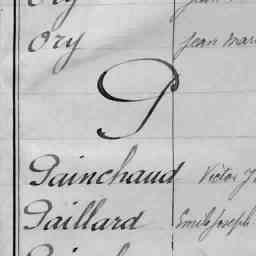 Ory Jean Mar
P
Painchaud Victor J
Paillard Emile Joseph